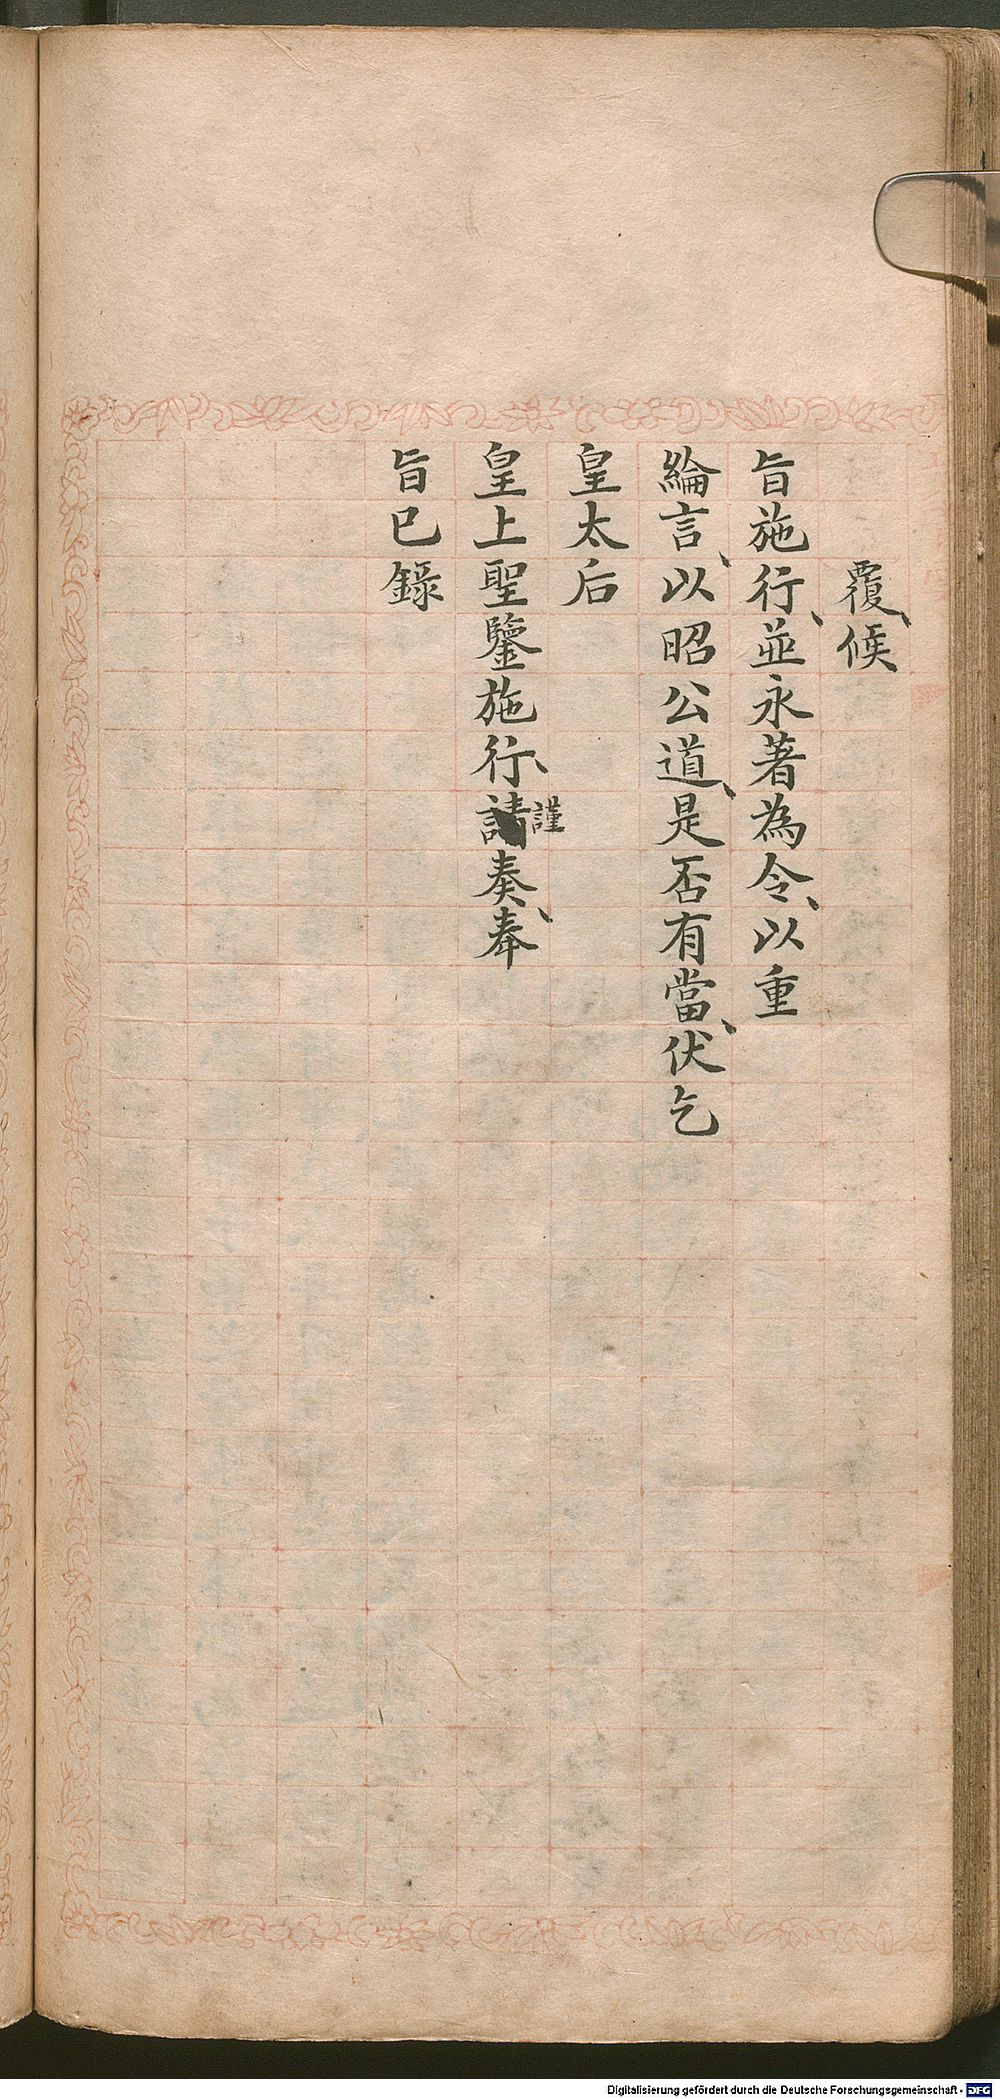 覆、候
旨施行、並永著為令、以重
綸言、以昭公道、是否有當、伏乞
皇太后
皇上聖鑒施行、謹奏、奉
旨已錄
Digitalisierung gefördert durch die Deutsche Forschungsgemeinschaft - DFG